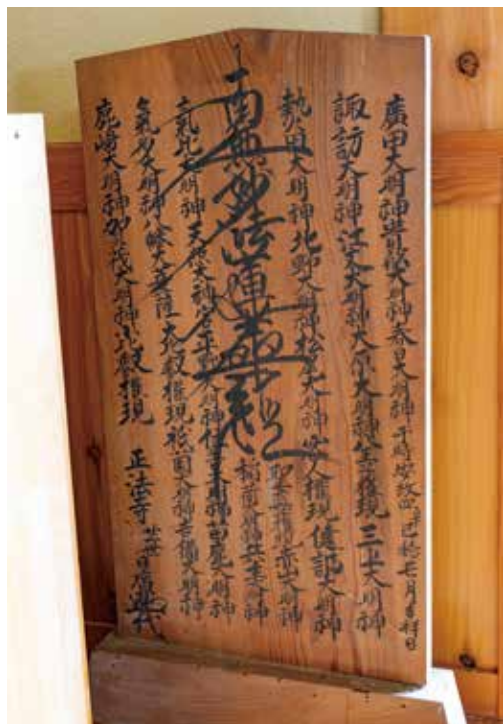 廣田大明神貴舩大明神春日大明神 于時安政四丁巳稔七月吉祥日
諏訪大明神江文大明神大原大明神八王子権現三上大明神
熱田大明神北野大明神松尾大明神客人権現健部大明神
南無妙法蓮華経
聖真子権現赤山大明神
稲荷大明神兵主大明神
氣比大明神天照大神宮平野大明神住吉大明神苗鹿大明神
氣多大明神八幡大菩薩大比叡権現祇園大明神吉備大明神
鹿嶋大明神加茂大明神小比叡権現 正法寺 廿世日